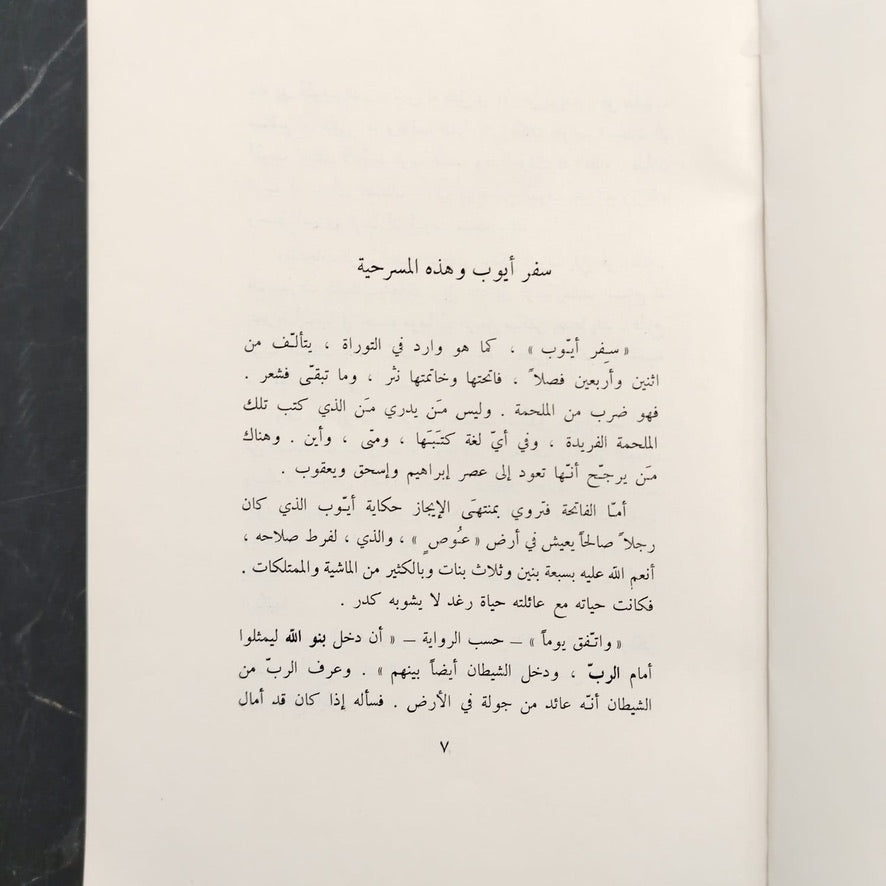 سفر أيوب وهذه المسرحية
« سِفر أيّوب » ، كما هو وارد في التوراة ، يتألّف من
اثنين وأربعين فصلاً ، فاتحتها وخاتمتها نثر ، وما تبقّى فشعر .
فهو ضرب من الملحمة . وليس مَن يدري مَن الذي كتب تلك
الملحمة الفريدة ، وفي أيّ لغة كتَبَها ، ومتى ، وأين . وهناك
مَن يرجّح أنّها تعود إلى عصر إبراهيم وإسحق ويعقوب .
أمّا الفاتحة فتروي بمنتهَى الإيجاز حكاية أيّوب الذي كان
رجلاً صالحاً يعيش في أرض « عُوصٍ » ، والذي ، لفرط صلاحه ،
أنعم الله عليه بسبعة بنين وثلاث بنات وبالكثير من الماشية والممتلكات .
فكانت حياته مع عائلته حياة رغد لا يشوبه كدر .
« واتّفق يوماً » – حسب الرواية – « أن دخل بنو الله ليمثلوا
أمام الربّ ، ودخل الشيطان أيضاً بينهم » . وعرف الربّ من
الشيطان أنّه عائد من جولة في الأرض . فسأله إذا كان قد أمال
٧